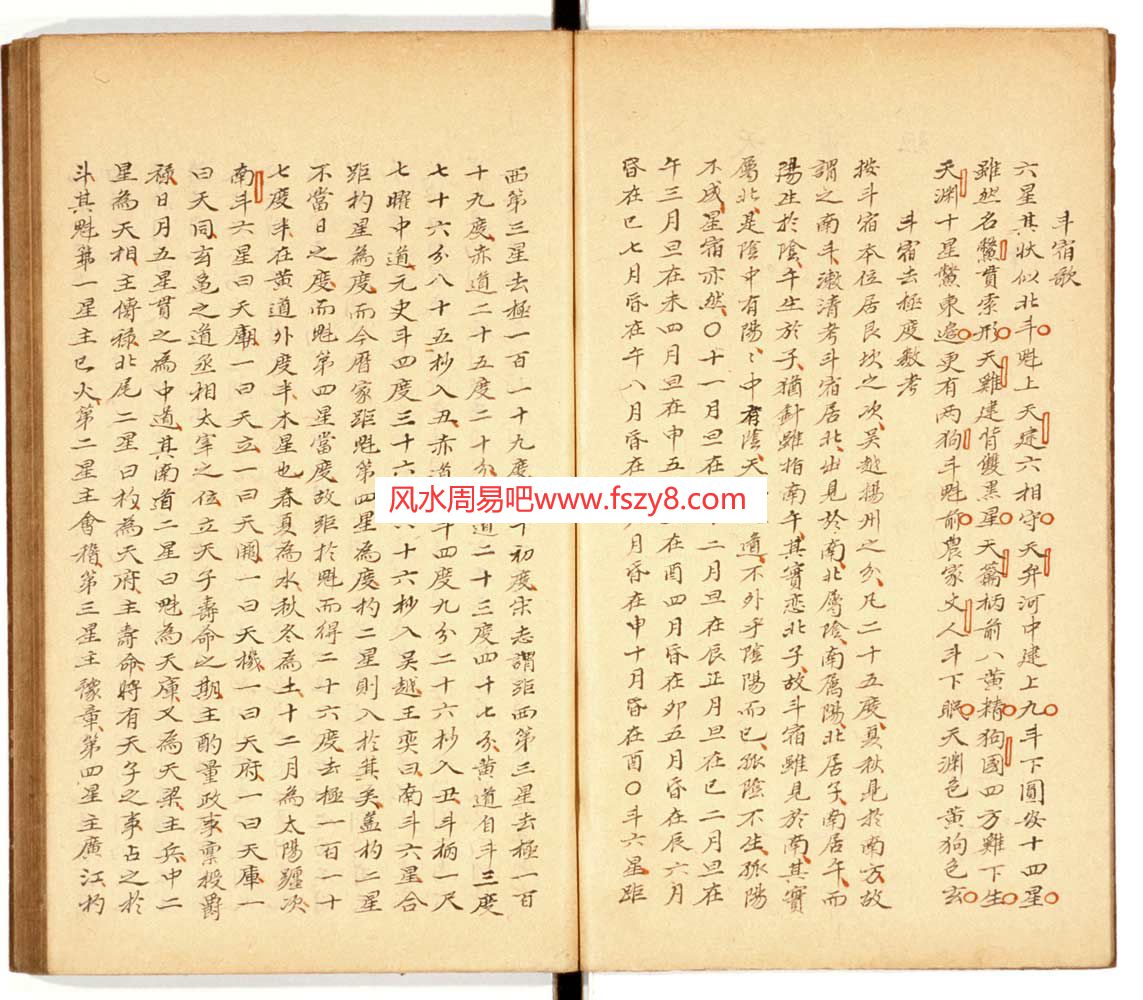 斗宿歌
六星其狀似北斗魁上天建六相守天弁河中建上九斗下圓安十四星
雖然名鱉貫索形天雞建背雙黑星天籥柄前八黃精狗國四方雞下生
天渊十星鱉東邉更有两狗斗魁前農家丈人斗下眠天渊色黄狗色玄
斗宿去極度数考
按斗宿本位居艮坎之次吴越揚州之分凡二十五度夏秋見扵南方故
謂之南斗澂清考斗宿居北出見扵南北属陰南属陽北居子南居午而
陽生扵陰午生扵子猶針雖指南午其實恋北子故斗宿雖見扵南其實
屬北是陰中有陽〻中有陰天道不外乎陰陽而已孤陰不生孤陽
不成星宿亦然〇十一月旦在二月旦在辰正月旦在巳二月旦在
午三月旦在未四月旦在申五在酉四月昏在卯五月昏在辰六月
昏在巳七月昏在午八月昏在月昏在申十月昏在酉〇斗六星距
西第三星去極一百一十九度初度宋志謂距西第三星去極一百
十九度赤道二十五度二十分道二十三度四十七分黄道自斗三度
七十六分八十五杪入丑赤道斗四度九分二十六杪入丑斗柄一尺
七曜中道元史斗四度三十六分六十六杪入吴越王奕曰南斗六星合
距杓星為度而今曆家距魁第四星為度杓二星則入扵箕矣盖杓二星
不當日之度而魁第四星當度故距扵魁而得二十六度去極一百一十
七度半在黄道外度半木星也春夏為水秋冬為土十二月為太陽躔次
南斗六星曰天廟一曰天立一曰天關一曰天機一曰天府一曰天庫一
曰天同玄龜之道丞相太宰之位立天子壽命之期主酌量政事禀授爵
禄日月五星貫之為中道其南道二星曰魁為天庫又為天梁主兵中二
星為天相主傳禄北尾二星曰杓為天府主壽命將有天子之事占之扵
斗其魁第一星主巳火第二星主會稽第三星主豫章第四星主廣江杓
风水周易吧www.fszy8.com